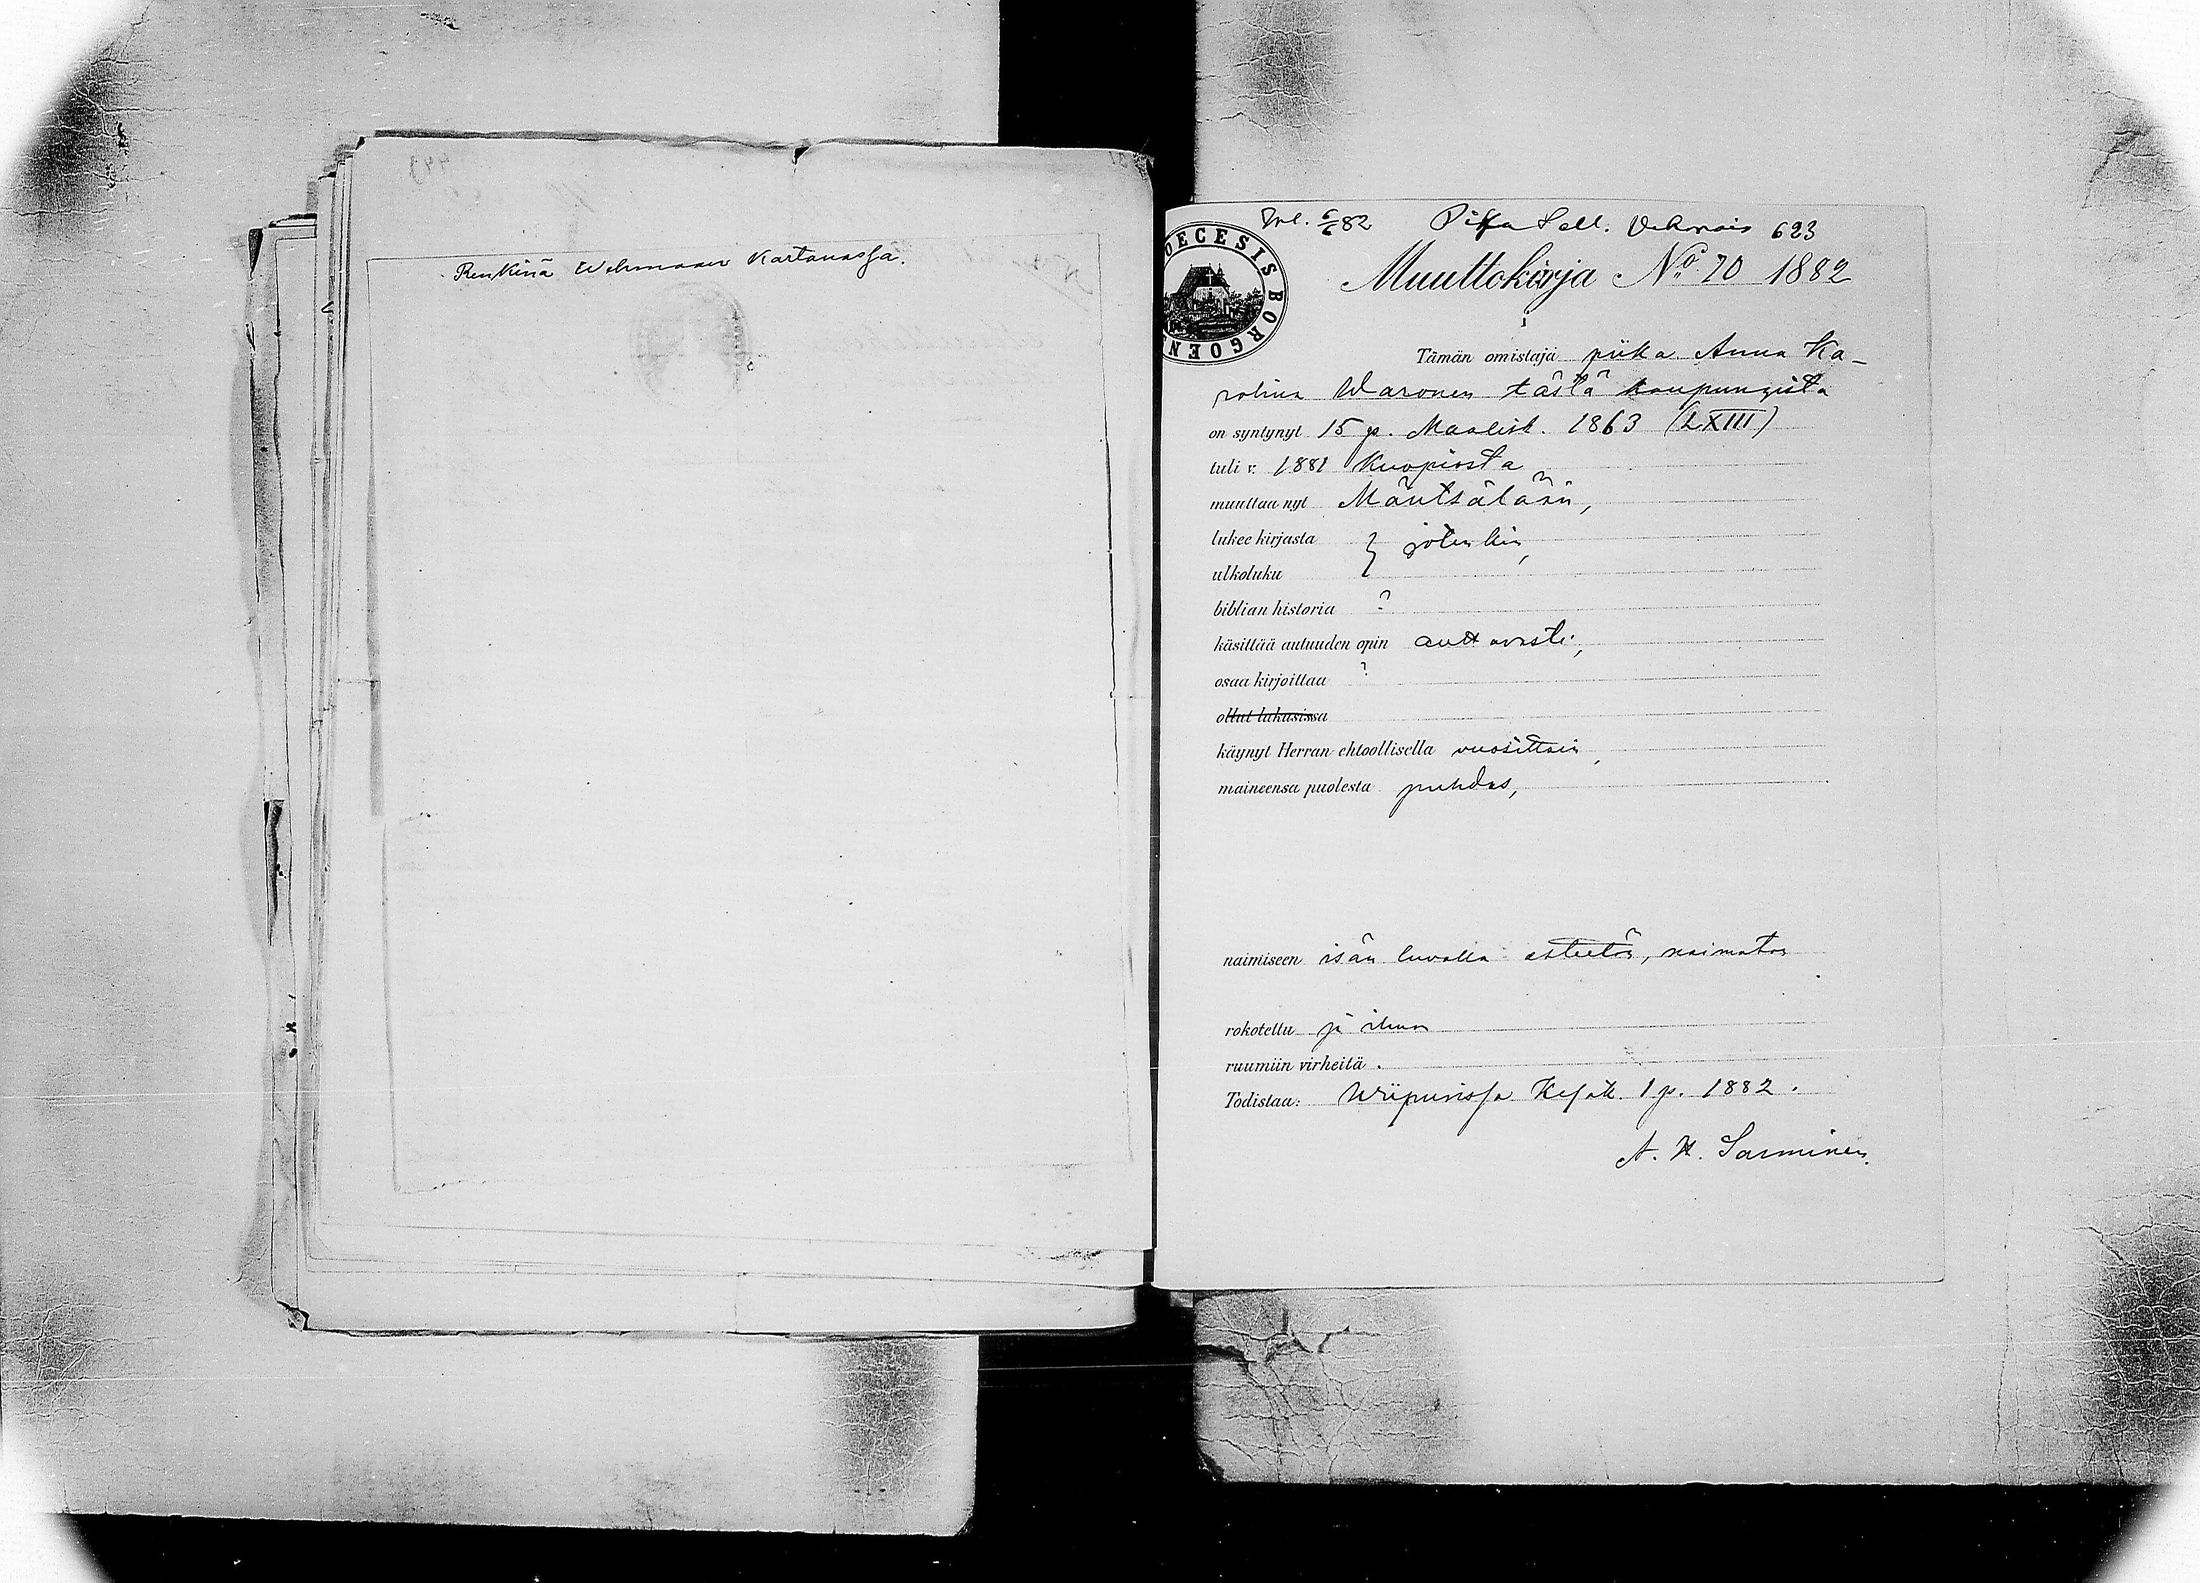 Renkinä Wehmaan Kartanossa.
Inl. 6/6 82 Pika Säll. Vehmais 623
DIOECESIS BORGOENS
Muuttokirja No. 70 1882
Tämän omistaja piika Anna Ka-
rolina Waronen tästä kaupungista
on syntynyt 15 p. Maalisk. 1863 (LXIII)
tuli v. 1881 Kuopiosta
muuttaa nyt Mäntsälään,
lukee kirjasta } jotenkin,
ulkoluku
biblian historia ?
käsittää autuuden opin auttavasti,
osaa kirjoittaa ?
ollut lukusissa
käynyt Herran ehtoollisella vuosittain,
maineensa puolesta puhdas,
naimiseen isän luvalla esteetön, naimaton
rokotettu ja ilman
ruumiin virheitä.
Todistaa: Wiipurissa Kesäk. 1 p. 1882.
A. W. Sarminen.